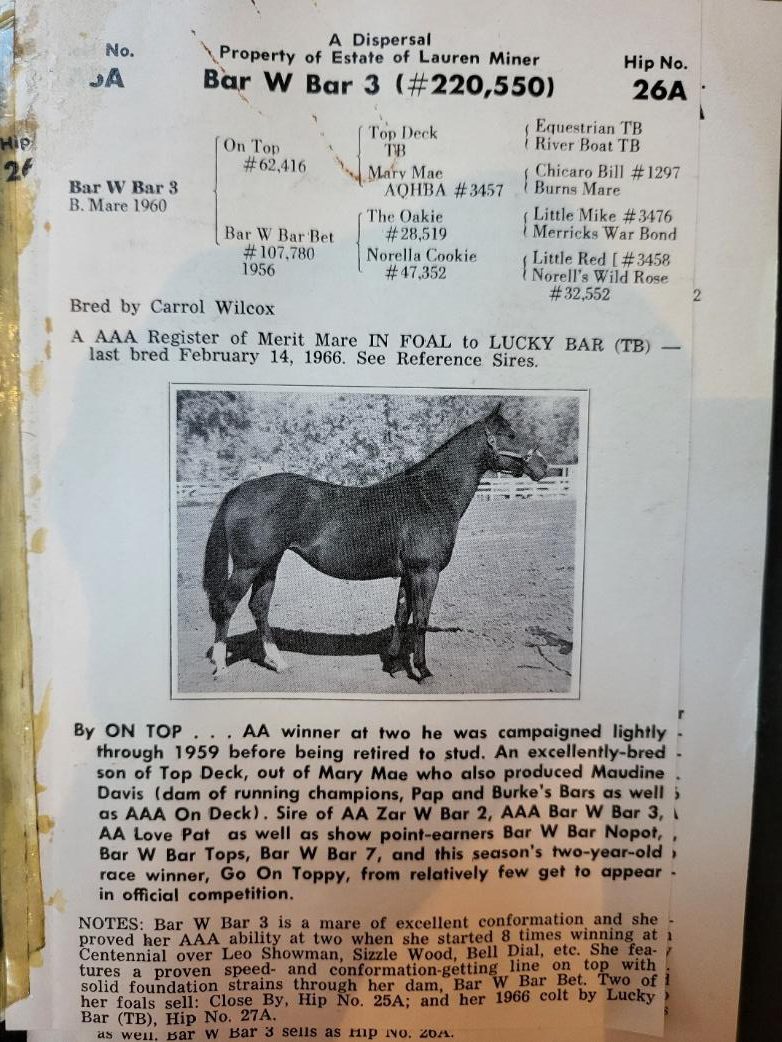 A Dispersal
No.
Property of Estate of Lauren Miner
Hip No.
Bar W Bar 3 (#220,550)
26A
Hip
On Top
#62,416
Top Deck
TB
Equestrian TB
River Boat TB
Mary Mae
AQHBA #3457
Chicaro Bill #1297
Burns Mare
Bar W Bar 3
B. Mare 1960
Bar W Bar Bet
#107,780
1956
The Oakie
#28,519
Little Mike #3476
Merricks War Bond
Norella Cookie
#47,352
Little Red [ #3458
Norell's Wild Rose
#32,552
2
Bred by Carrol Wilcox
A AAA Register of Merit Mare IN FOAL to LUCKY BAR (TB) —
last bred February 14, 1966. See Reference Sires.
By ON TOP . . . AA winner at two he was campaigned lightly
through 1959 before being retired to stud. An excellently-bred
son of Top Deck, out of Mary Mae who also produced Maudine
Davis (dam of running champions, Pap and Burke's Bars as well
as AAA On Deck). Sire of AA Zar W Bar 2, AAA Bar W Bar 3,
AA Love Pat as well as show point-earners Bar W Bar Nopot,
Bar W Bar Tops, Bar W Bar 7, and this season's two-year-old
race winner, Go On Toppy, from relatively few get to appear
in official competition.
NOTES: Bar W Bar 3 is a mare of excellent conformation and she
proved her AAA ability at two when she started 8 times winning at
Centennial over Leo Showman, Sizzle Wood, Bell Dial, etc. She fea-
tures a proven speed- and conformation-getting line on top with
solid foundation strains through her dam, Bar W Bar Bet. Two of
her foals sell: Close By, Hip No. 25A; and her 1966 colt by Lucky
Bar (TB), Hip No. 27A.
as well. Bar W Bar 3 sells as Hip No. 26A.